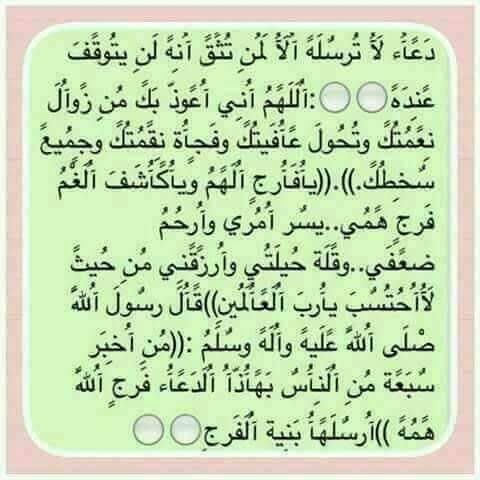 دَعَُاَء لَاُ تُرسُلَهَ اَلُاَ لَمُنِ تُثَقَ اَنهَِ لَنِ يتوُقفََ
عَندِهَ :اَلُلَهَمُ اُني اُعوَذّ بكَ مُنِ زَواُلَ
نعَِمُتكُ وتحُولَ عَاُفَيتكُ وفَجاُةَ نقَمُتكُ وجمُيعَ
سُخطِكُ.)).((ياُفَاُرجِ اَلُهَمُ وياُكاُشَفَ اَلُغَمُ
فَرجِ هَمُي..يسُر اُمُري واُرحُمُ
ضعَفَي..وقلَةَ حُيلَتُي واُرزَقَني مُنِ حُيثَ
لَاُاُحُتسُبَ ياُربَ اَلُعَاُلَمُينِ))قاَُلَ رسُولَ اُللهَ
صْلَى اُللهَ عَلَيهَ واُلَهَ وسُلَمُ :((مُنِ اُخبَر
سُبعََةَ مُنِ اَلُناُسُ بَهَاُذّاُ اَلُدَعَاُء فَرجِ اُللهَ
هَمُهَ ))اُرسُلَهَاُ بَنيةِ اَلُفَرجِ